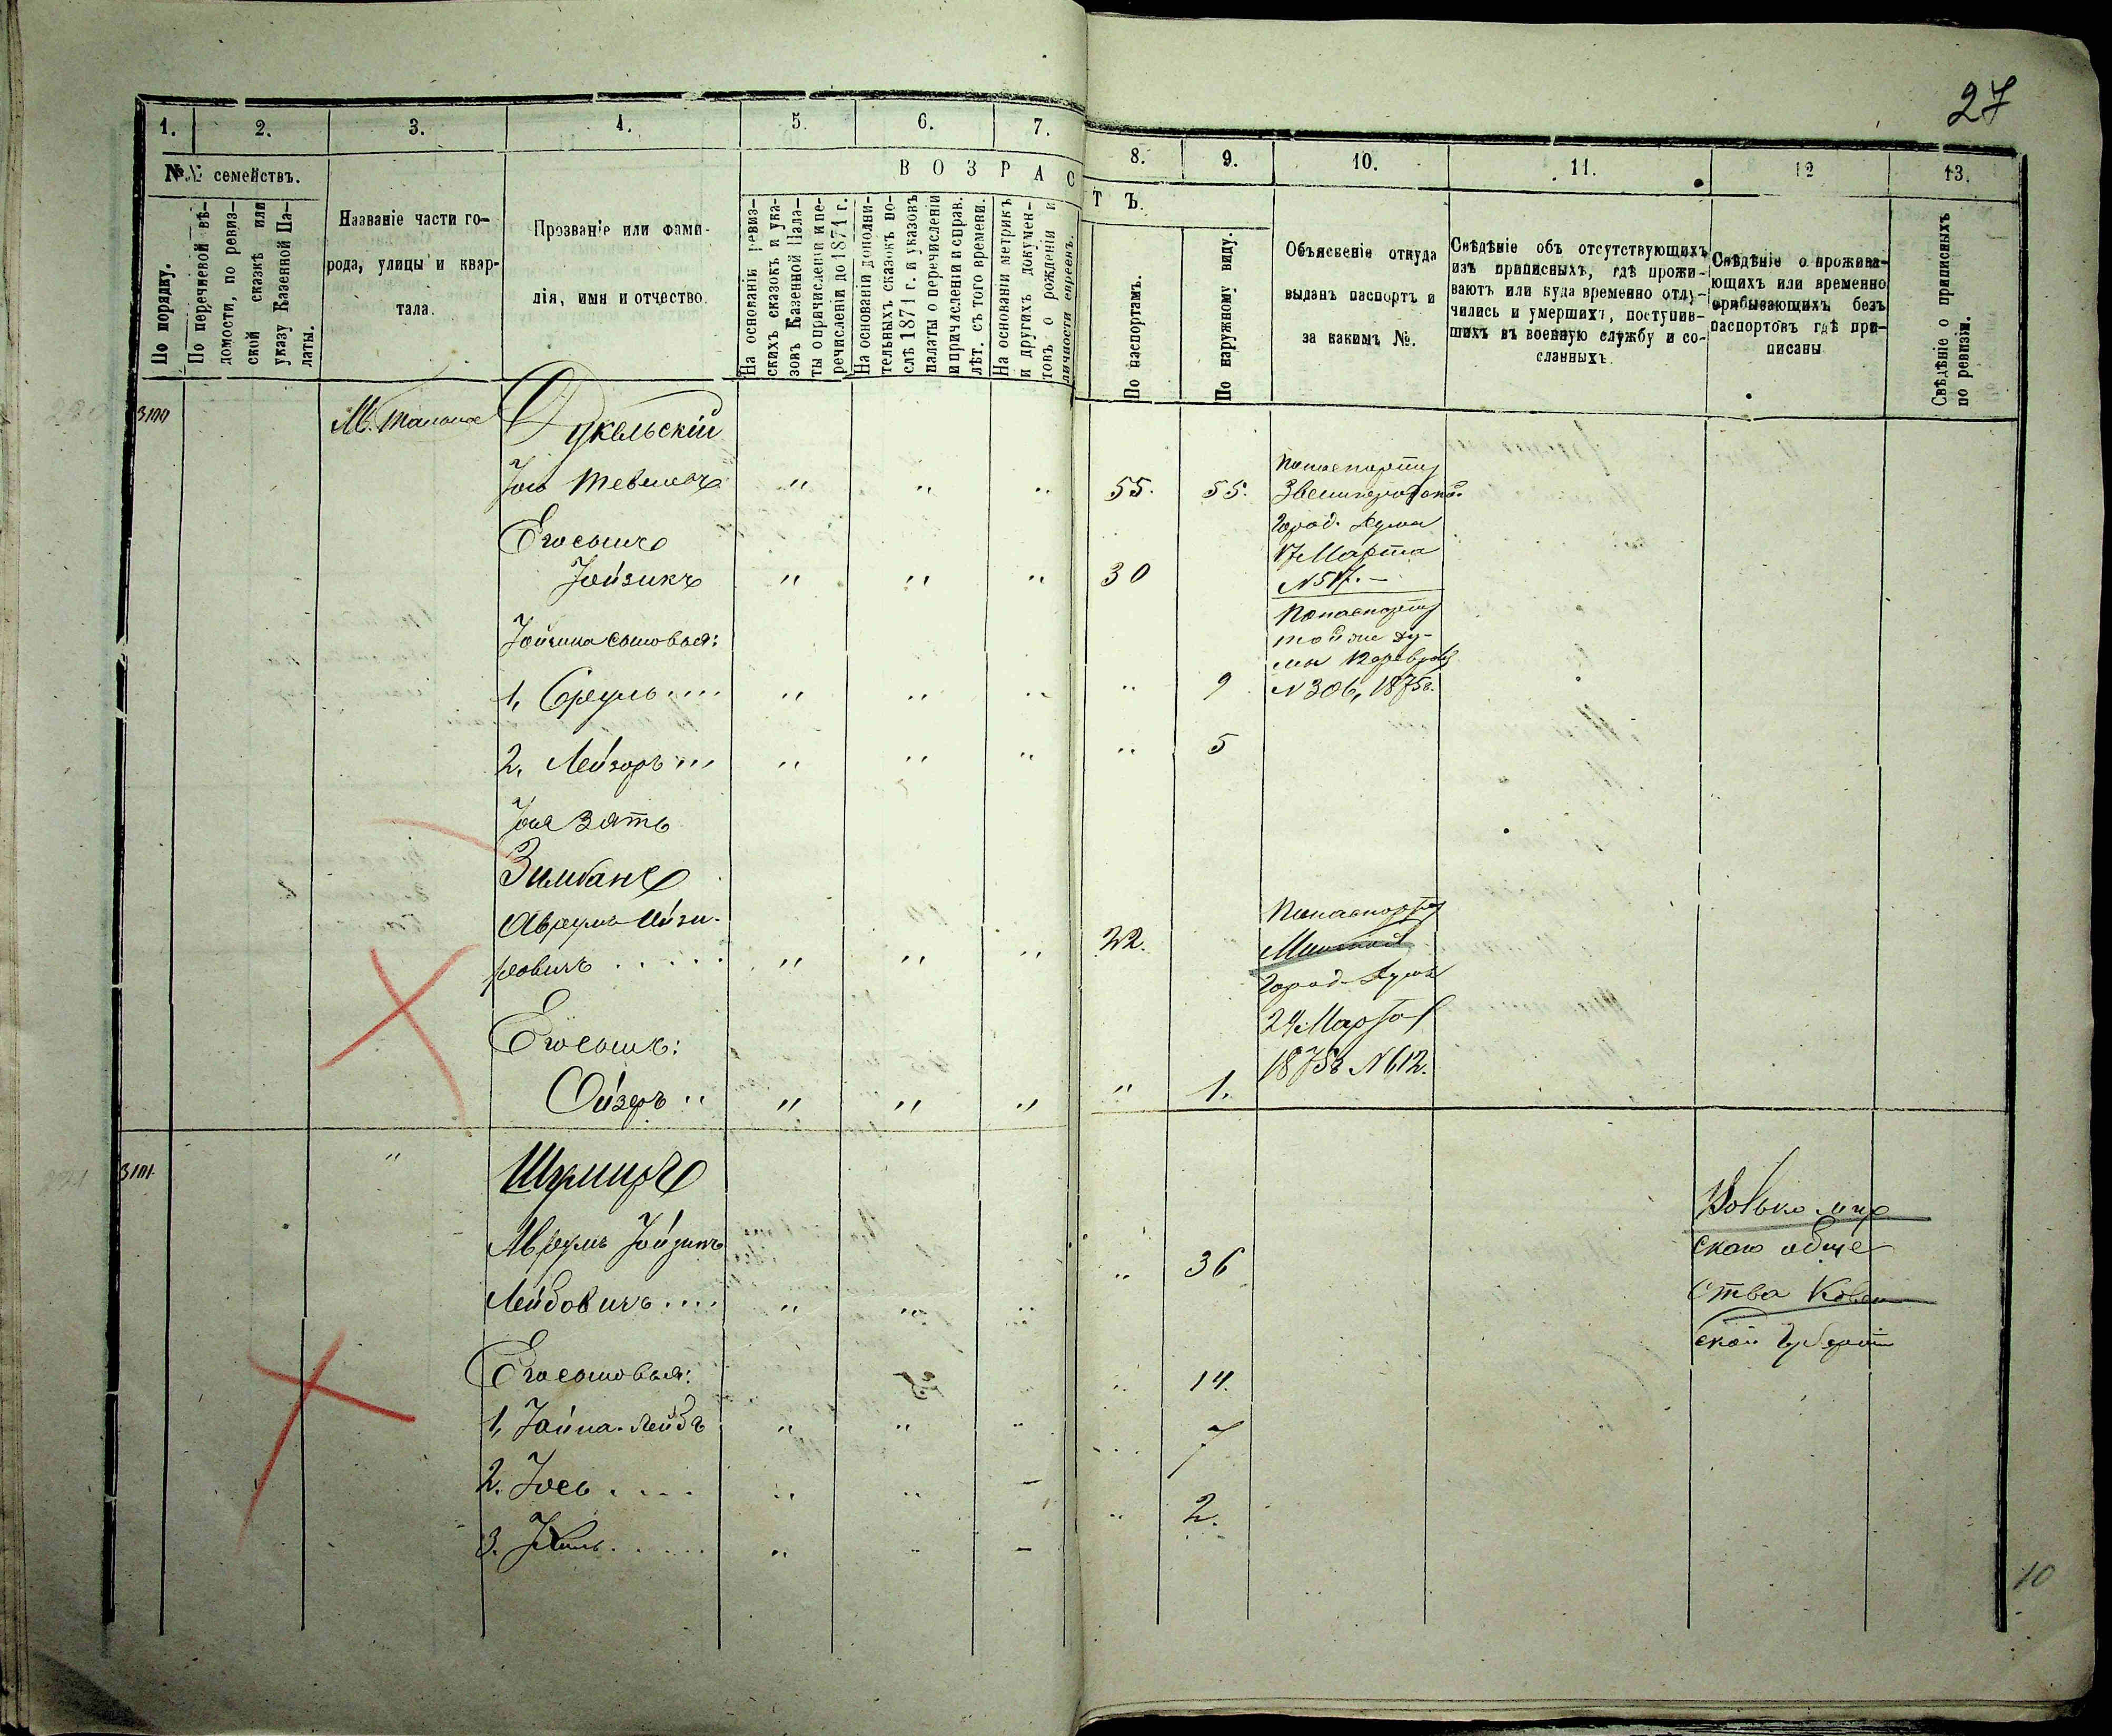 27
1. 2. 3. 4. 5. 6. 7. 8. 9. 10. 11. 12 13.
№№ семействъ.
По порядку.
По перечневой вѣ-
домости, по ревиз-
ской сказкѣ или
указу Казенной Па-
латы.
Названіе части го-
рода, улицы и квар-
тала.
Прозваніе или фами-
лія, имя и отчество.
ВОЗРАСТЪ.
На основаніи ревиз-
скихъ сказокъ и ука-
зовъ Казенной Пала-
ты о причисленіи и пе-
речисленіи до 1871 г.
На основаніи дополни-
тельныхъ сказокъ по-
слѣ 1871 г. и указовъ
палаты о перечисленіи
и причисленіи и справ.
лѣт. съ того времени.
На основаніи метрикъ
и другихъ докумен-
товъ о рожденіи и
личности евреевъ.
По паспортамъ.
По наружному виду.
Объясненіе откуда
выданъ паспортъ и
за какимъ №.
Свѣдѣніе объ отсутствующихъ
изъ приписныхъ, гдѣ прожи-
ваютъ или куда временно отлу-
чились и умершихъ, поступив-
шихъ въ военную службу и со-
сланныхъ.
Свѣдѣніе о прожива-
ющихъ или временно
прибывающихъ безъ
паспортовъ гдѣ при-
писаны
Свѣдѣніе о приписныхъ
по ревизіи.
3100 М. Тальное Дукельскій
Іось Тевелевъ " " " 55. 55.
Попаспорту
Звенигородской
Город. Думы
17 Марта
N 517. —
Его сынъ
Іойзикъ " " " 30
Попаспорту
той же Ду-
мы
N 306, 1875г.
Іойзика сыновья:
1, Сруль .... " " " " 9
2, Лейзоръ ... " " " " 5
Іося зять
Зильбанъ
Аврумъ Айзи-
ровичъ ..... " " " 22.
Попаспорту
Город Думы
24 Марта
1875г N 612.
Его сынъ:
Ойзеръ .. " " " " 1.
3101 " Шпиръ
Аврумъ Іойзинъ
Лейбовичъ .... " " " " 36
Волькомир
скаго обще
ства Ковен
ской Губерніи
Его сыновья:
1, Іойна-Лейбъ " " " " 14.
2. Іось .... " " - 7
3. " " - " 2.
10